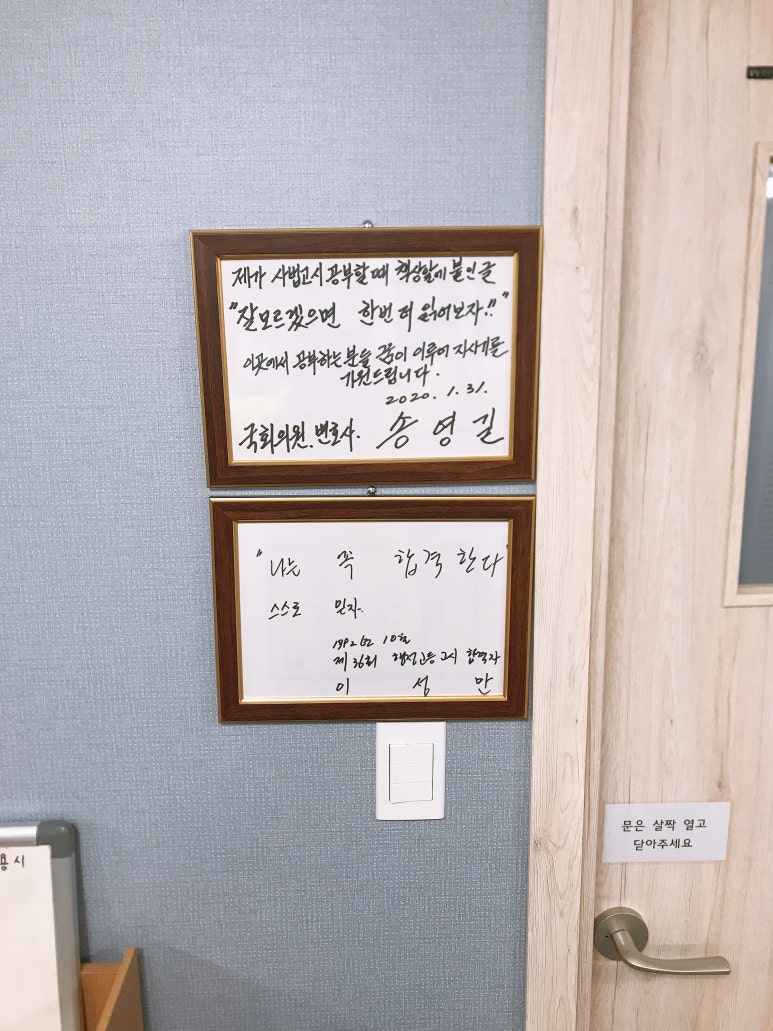 제가 사법고시 공부할 때 책상앞에 붙인 글
"잘 모르겠으면 한번 더 읽어보자!!"
이곳에서 공부하는 분들 꿈이 이루어 지시기를
기원드립니다.
2020. 1. 31.
국회의원. 변호사. 송영길
"나는 꼭 합격한다"
스스로 믿자.
1992년 10월
제36회 행정고등고시 합격자
이 성 만
문은 살짝 열고
닫아주세요
용시